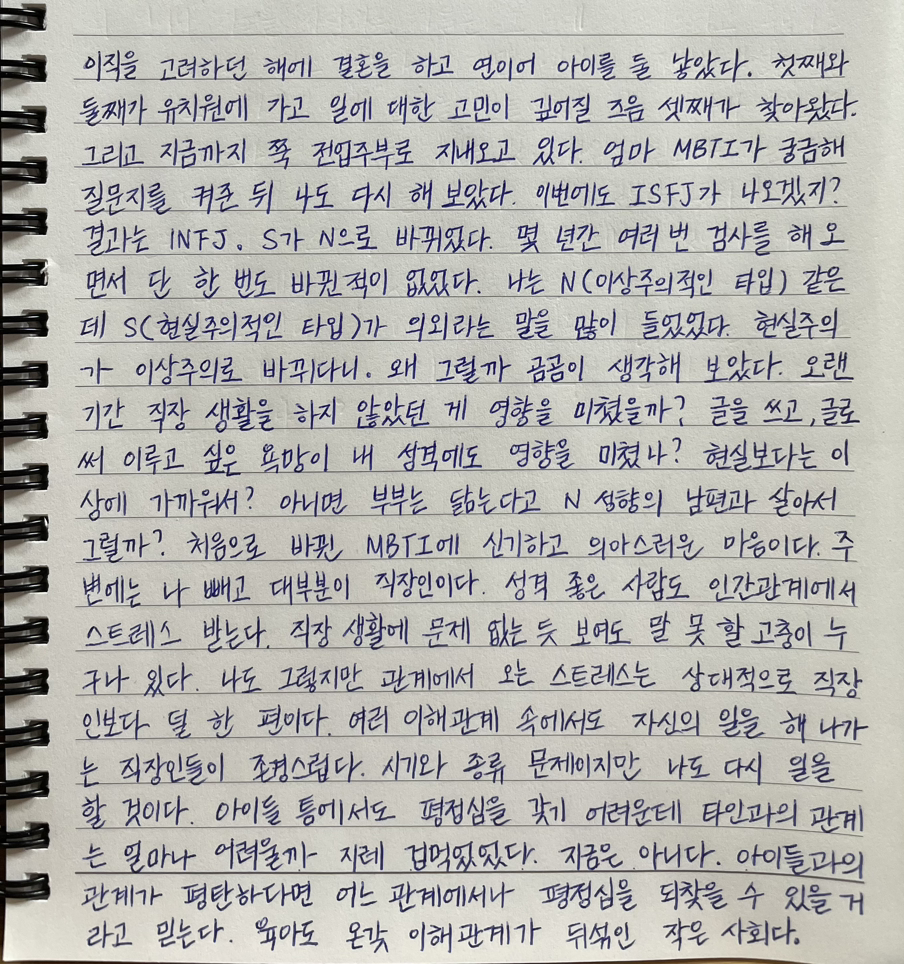 이직을 고려하던 해에 결혼을 하고 연이어 아이를 둘 낳았다. 첫째와
둘째가 유치원에 가고 일에 대한 고민이 깊어질 즈음 셋째가 찾아왔다.
그리고 지금까지 쭉 전업주부로 지내오고 있다. 엄마 MBTI가 궁금해
질문지를 켜준 뒤 나도 다시 해 보았다. 이번에도 ISFJ가 나오겠지?
결과는 INFJ. S가 N으로 바뀌었다. 몇 년간 여러 번 검사를 해 오
면서 단 한 번도 바뀐적이 없었다. 나는 N(이상주의적인 타입) 같은
데 S(현실주의적인 타입)가 의외라는 말을 많이 들었었다. 현실주의
가 이상주의로 바뀌다니. 왜 그럴까 곰곰이 생각해 보았다. 오랜
기간 직장 생활을 하지 않았던 게 영향을 미쳤을까? 글을 쓰고, 글로
써 이루고 싶은 욕망이 내 성격에도 영향을 미쳤나? 현실보다는 이
상에 가까워서? 아니면 부부는 닮는다고 N 성향의 남편과 살아서
그럴까? 처음으로 바뀐 MBTI에 신기하고 의아스러운 마음이다. 주
변에는 나 빼고 대부분이 직장인이다. 성격 좋은 사람도 인간관계에서
스트레스 받는다. 직장 생활에 문제 없는 듯 보여도 말 못 할 고충이 누
구나 있다. 나도 그렇지만 관계에서 오는 스트레스는 상대적으로 직장
인보다 덜 한 편이다. 여러 이해관계 속에서도 자신의 일을 해 나가
는 직장인들이 존경스럽다. 시기와 종류 문제이지만 나도 다시 일을
할 것이다. 아이들 틈에서도 평정심을 갖기 어려운데 타인과의 관계
는 얼마나 어려울까 지레 겁먹었었다. 지금은 아니다. 아이들과의
관계가 평탄하다면 어느 관계에서나 평정심을 되찾을 수 있을 거
라고 믿는다. 육아도 온갖 이해관계가 뒤섞인 작은 사회다.